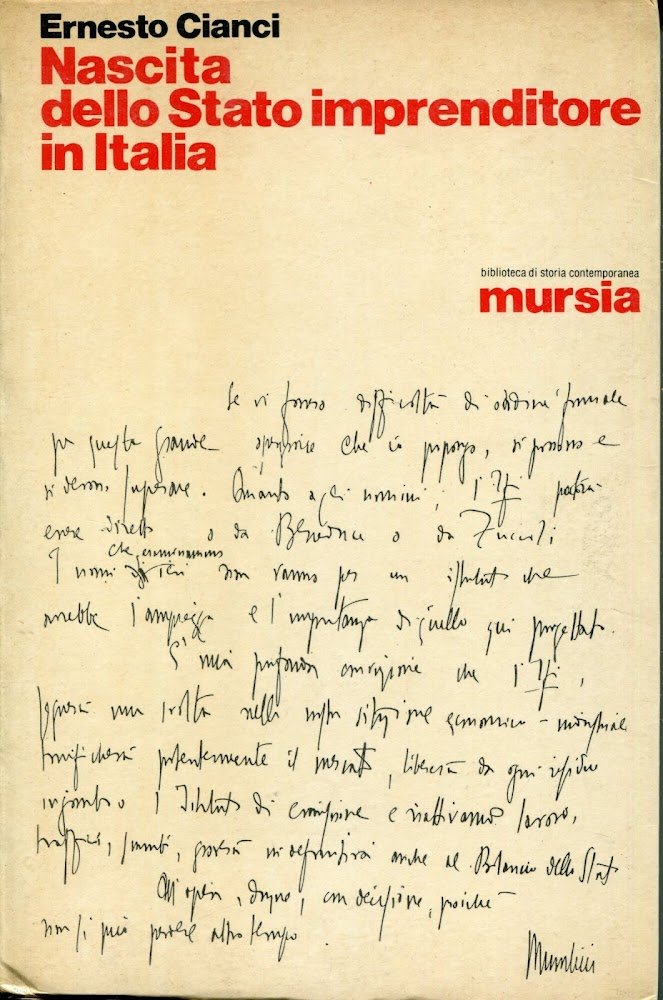 Ernesto Cianci
Nascita
dello Stato imprenditore
in Italia
biblioteca di storia contemporanea
mursia
Se vi fossero difficoltà di ordine formale
per questa grande operazione che io propongo, si possono e
si devono superare. Quanto agli uomini, l'Ifi potrà
essere diretto o da Beneduce o da Zuccoli
I nomi che non vanno per un istituto che
avrebbe l'ampiezza e l'importanza di quello qui progettato.
E' mia profonda convinzione che l'Ifi,
segnerà una svolta nella nostra situazione economico-industriale
tonificherà potentemente il mercato, libererà da ogni residuo
ingombro l'Istituto di emissione e riattivando lavoro,
traffici, scambi, gioverà in definitiva anche al Bilancio dello Stato
All'opera, dunque, con decisione, poichè
non si può perdere altro tempo.
Mussolini